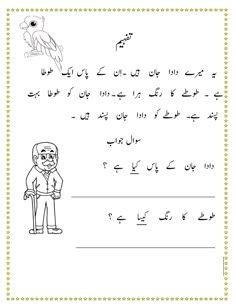 تفہیم
یہ میرے دادا جان ہیں ۔اِن کے پاس ایک طوطا
ہے ۔ طوطے کا رنگ ہرا ہے۔دادا جان کو طوطا بہت
پسند ہے۔ طوطے کو دادا جان پسند ہیں ۔
سوال جواب
دادا جان کے پاس کیا ہے ؟
طوطے کا رنگ کیسا ہے ؟